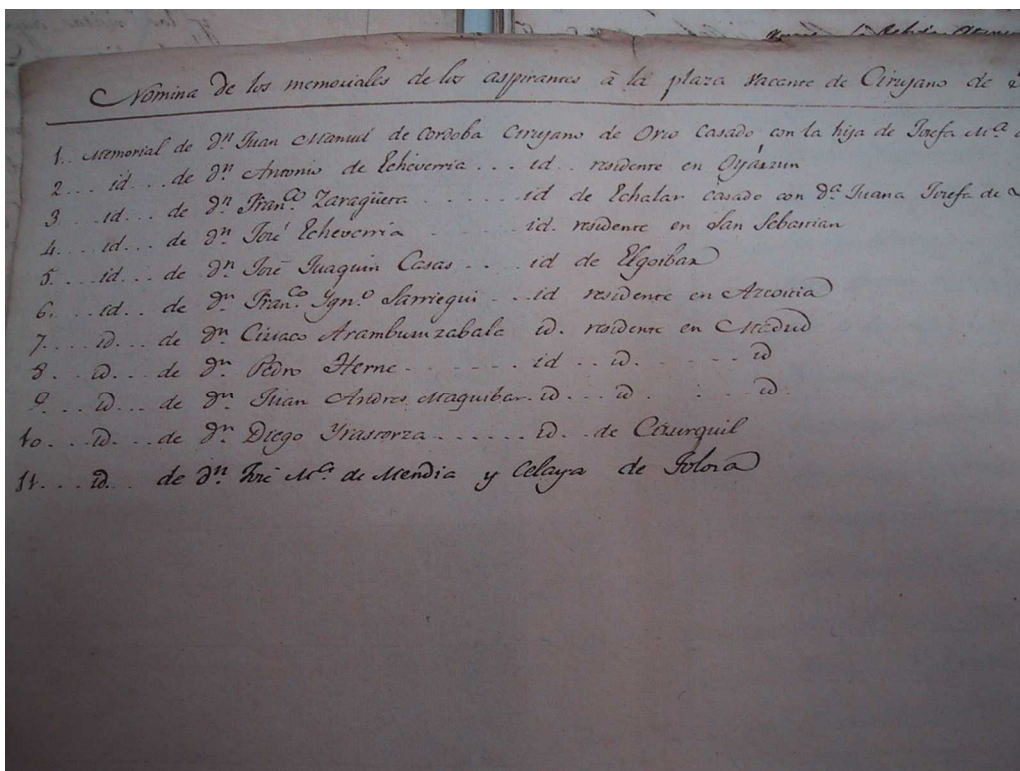 Nómina de los memoriales de los aspirantes à la plaza vacante de Cirujano de
1.. Memorial de Dn Juan Manuel de Cordoba Cirujano de Orio Casado con la hija de Josefa Ma. de
2... id... de Dn Antonio de Echeverria... id.. residente en Oyárzun
3. ..id.. de Dn Franco. Zaragüeta ...... id de Echalar Casado con Da. Juana Josefa de
4... id... de Dn José Echeverria id. residente en San Sebastian
5. .. id... de Dn José Juaquin Casas.... id de Elgoibar
6. ..id... de Dn Franco. Ygno. Sarriegui ...id residente en Azcoitia
7.... id... de Dn Ciriaco Aramburuzabala id. residente en Madrid
8. .. id... de Dn Pedro Herne....... id .. id. ..... id
9... id... de Dn Juan Andres Maguibar. id... id. ... id.
10.... id... de Dn Diego Yrastorza...... id. . de Cizurquil
11.... id... de Dn José Ma. de Mendia y Celaya de Tolosa